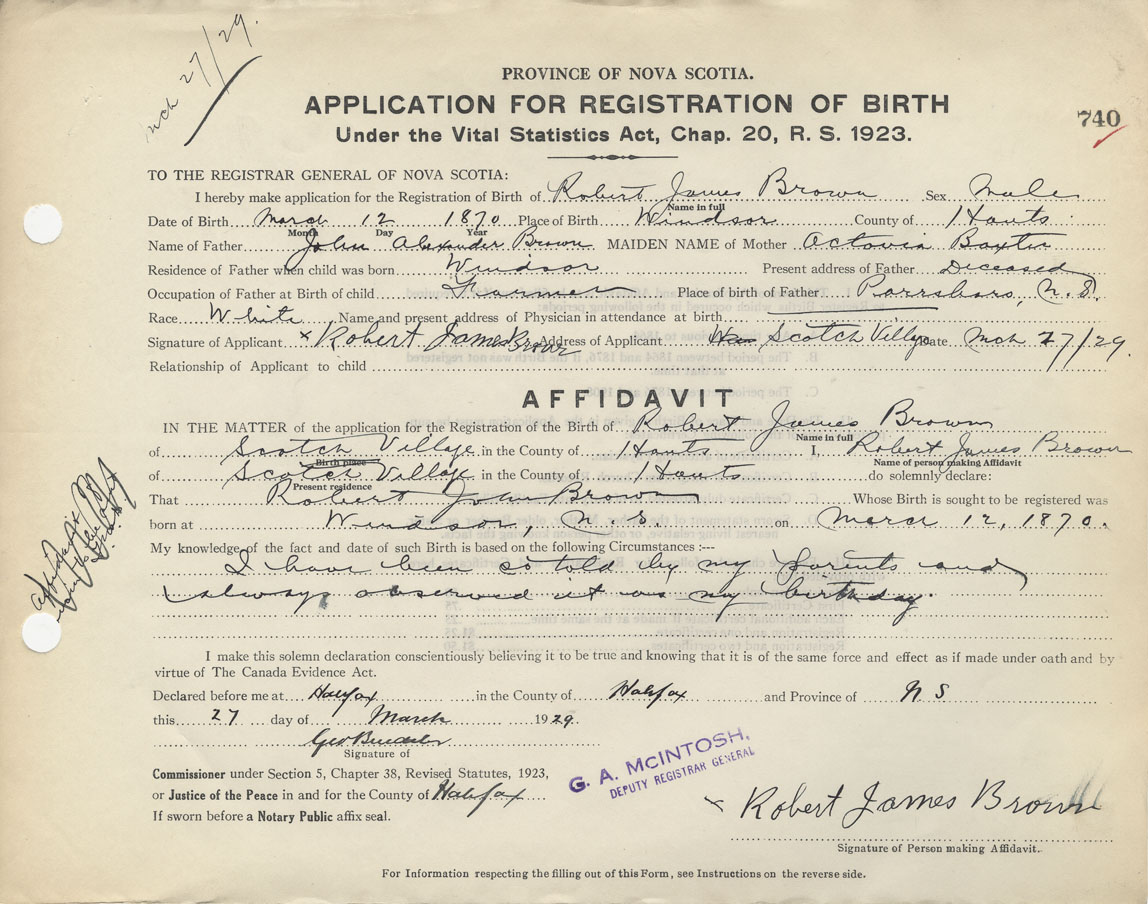 mch 27/29.
PROVINCE OF NOVA SCOTIA.
APPLICATION FOR REGISTRATION OF BIRTH
Under the Vital Statistics Act, Chap. 20, R. S. 1923.
740
TO THE REGISTRAR GENERAL OF NOVA SCOTIA:
I hereby make application for the Registration of Birth of Robert James Brown Sex Male
Name in full
Date of Birth March 12 1870 Place of Birth Windsor County of Hants
Month Day Year
Name of Father John Alexander Brown MAIDEN NAME of Mother Octavia Baxter
Residence of Father when child was born Windsor Present address of Father Deceased
Occupation of Father at Birth of child Farmer Place of birth of Father Parrsboro, N.S.
Race White Name and present address of Physician in attendance at birth
Signature of Applicant x Robert James Brown Address of Applicant Scotch Village Date Mch 27/29.
Relationship of Applicant to child
AFFIDAVIT
IN THE MATTER of the application for the Registration of the Birth of Robert James Brown
Name in full
of Scotch Village in the County of Hants I, Robert James Brown
Birth place Name of person making Affidavit
of Scotch Village in the County of Hants do solemnly declare:
Present residence
That Robert John Brown Whose Birth is sought to be registered was
born at Windsor, N.S. on March 12, 1870.
My knowledge of the fact and date of such Birth is based on the following Circumstances :---
I have been so told by my Parents and
always observed it as my birthday.
I make this solemn declaration conscientiously believing it to be true and knowing that it is of the same force and effect as if made under oath and by
virtue of The Canada Evidence Act.
Declared before me at Halifax in the County of Halifax and Province of N S
this 27 day of March 1929.
Geo
Signature of
Commissioner under Section 5, Chapter 38, Revised Statutes, 1923,
or Justice of the Peace in and for the County of Halifax
If sworn before a Notary Public affix seal.
G. A. McINTOSH,
DEPUTY REGISTRAR GENERAL
x Robert James Brown
Signature of Person making Affidavit.
For Information respecting the filling out of this Form, see Instructions on the reverse side.